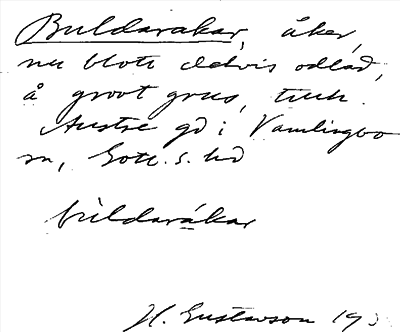 Buldarakar, åker,
nu blott delvis odlad,
å grovt grus, tillh.
Austre gd i Vamlingbo
sn, Gotl. s. hd
bùldaràkar
H. Gustavson 193